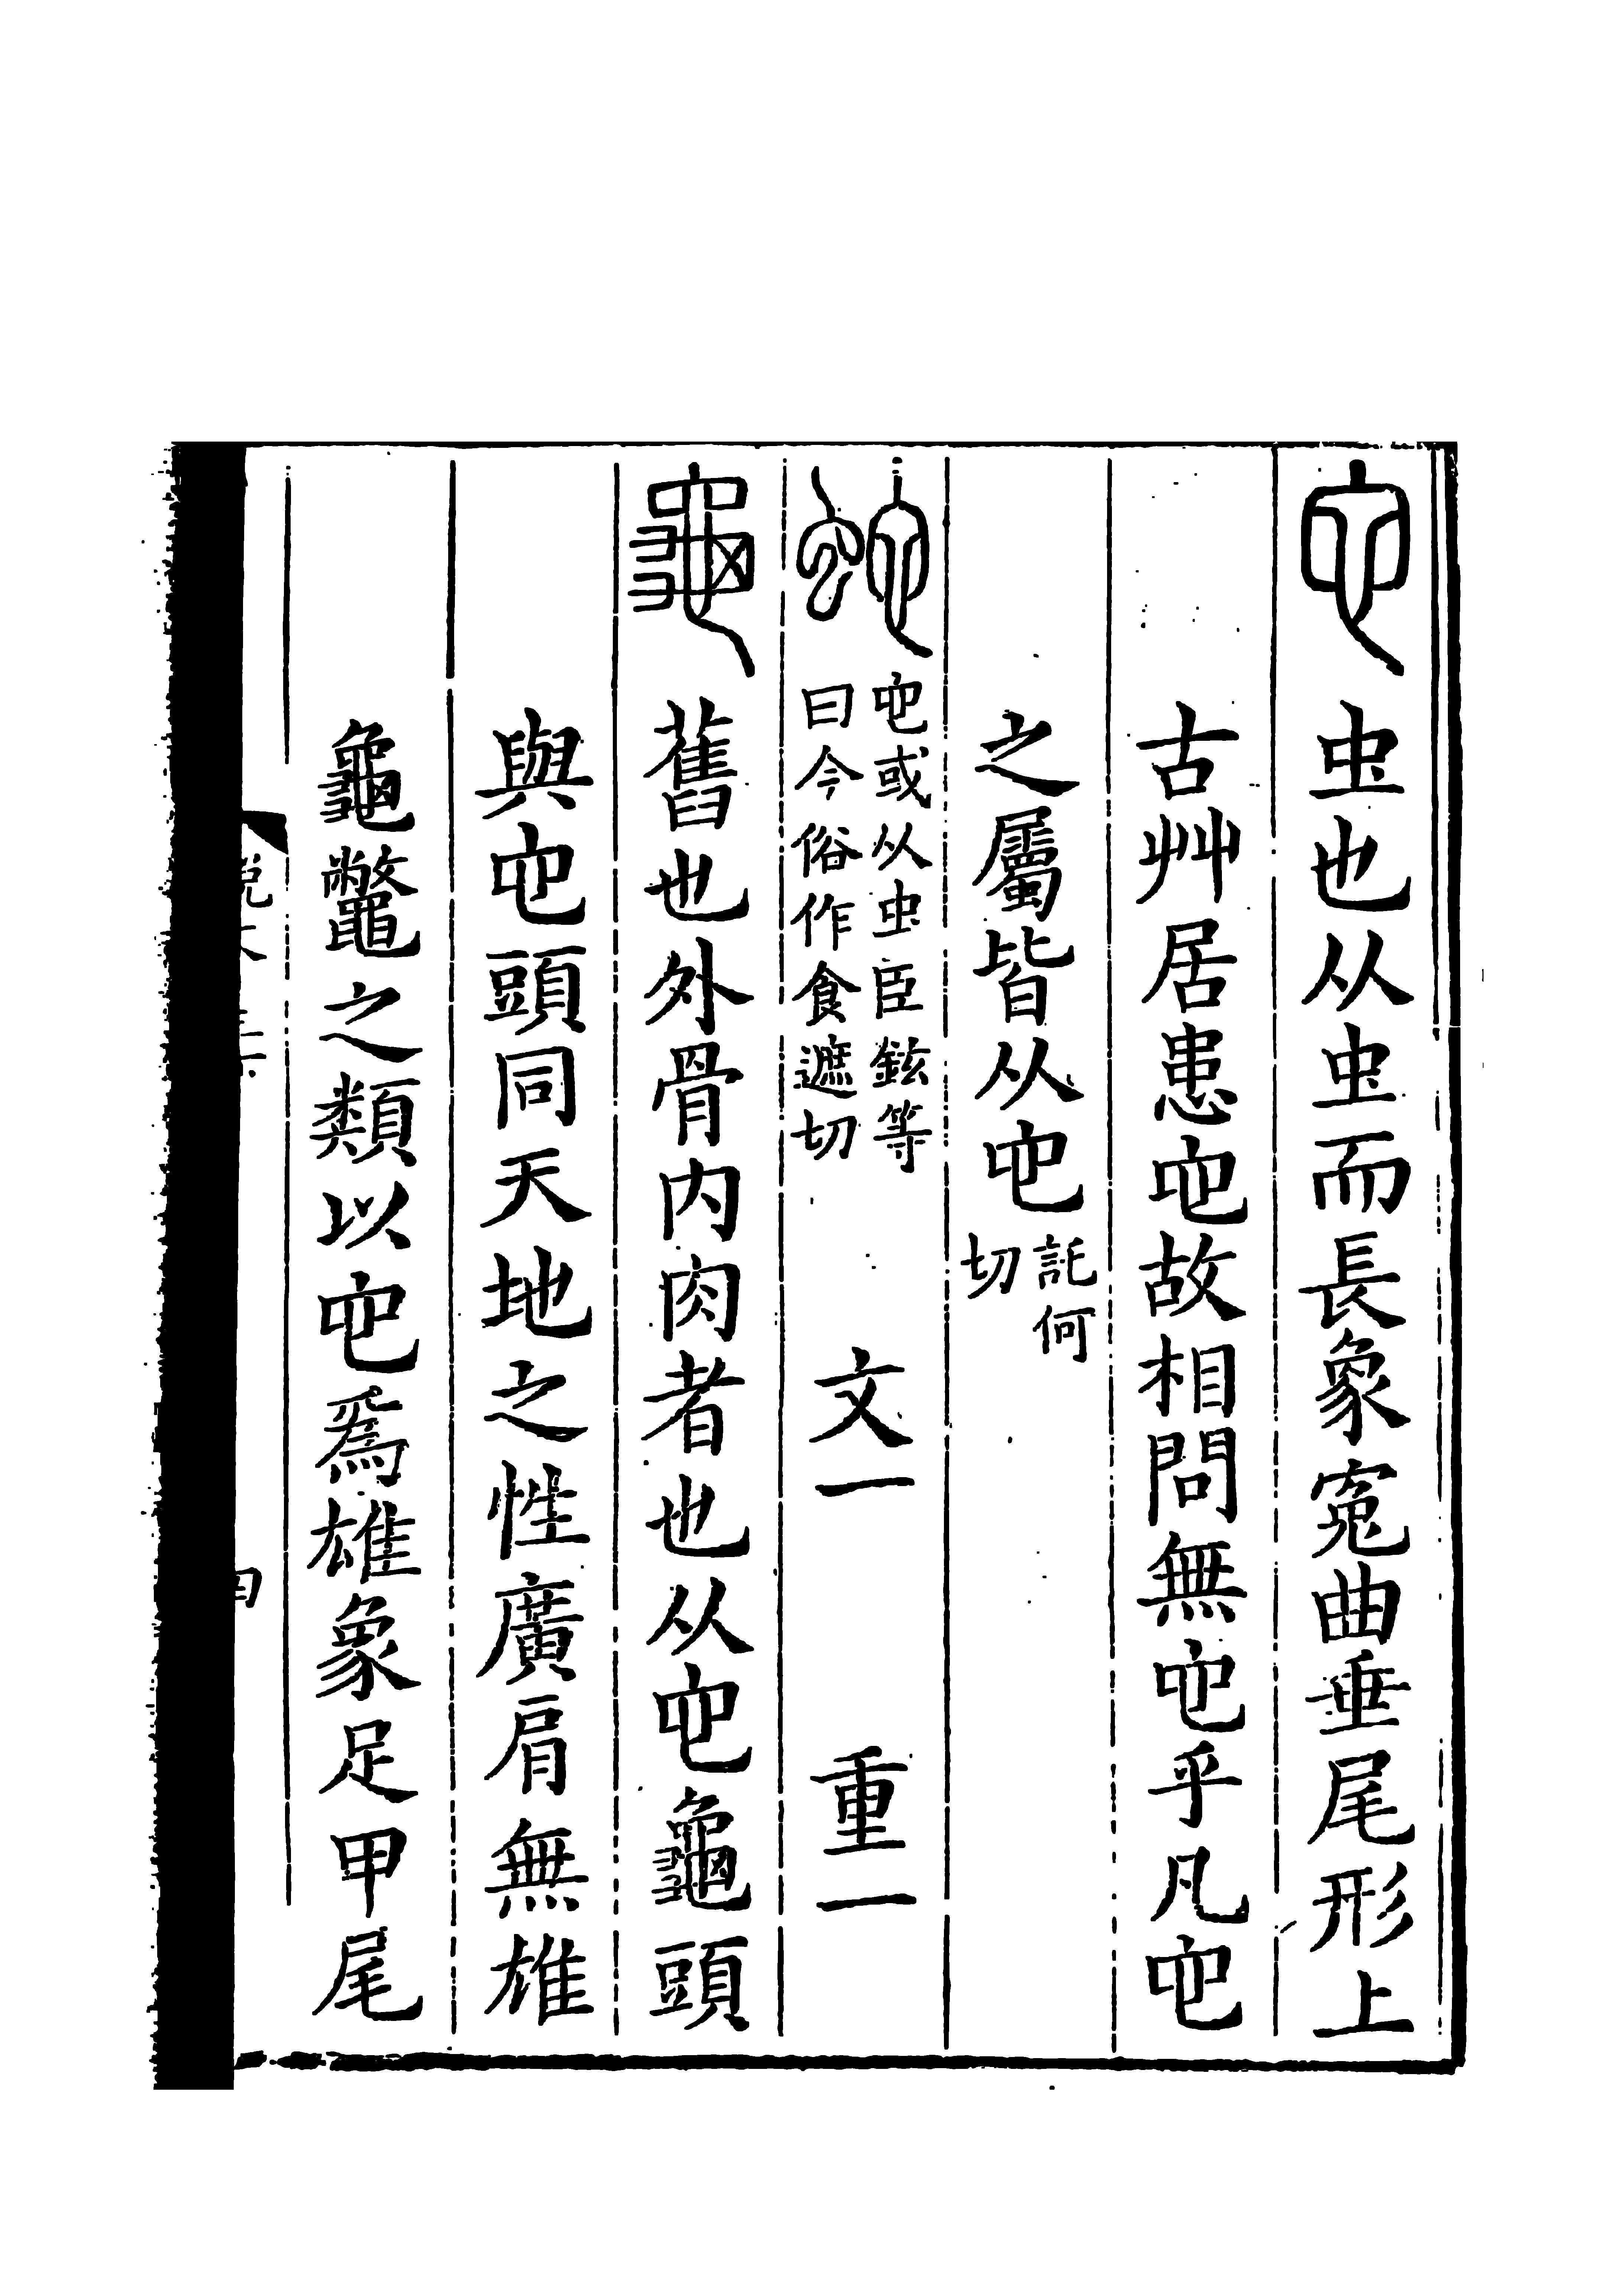 它虫也从虫而長象冤曲垂尾形上
古艸居患它故相問無它乎凡它
之屬皆从它託何切
蛇它或从虫臣鉉等曰今俗作食遮切 文一 重一
龜舊也外骨内肉者也从它龜頭
與它頭同天地之性廣肩無雄
龜鼈之類以它爲雄象足甲尾